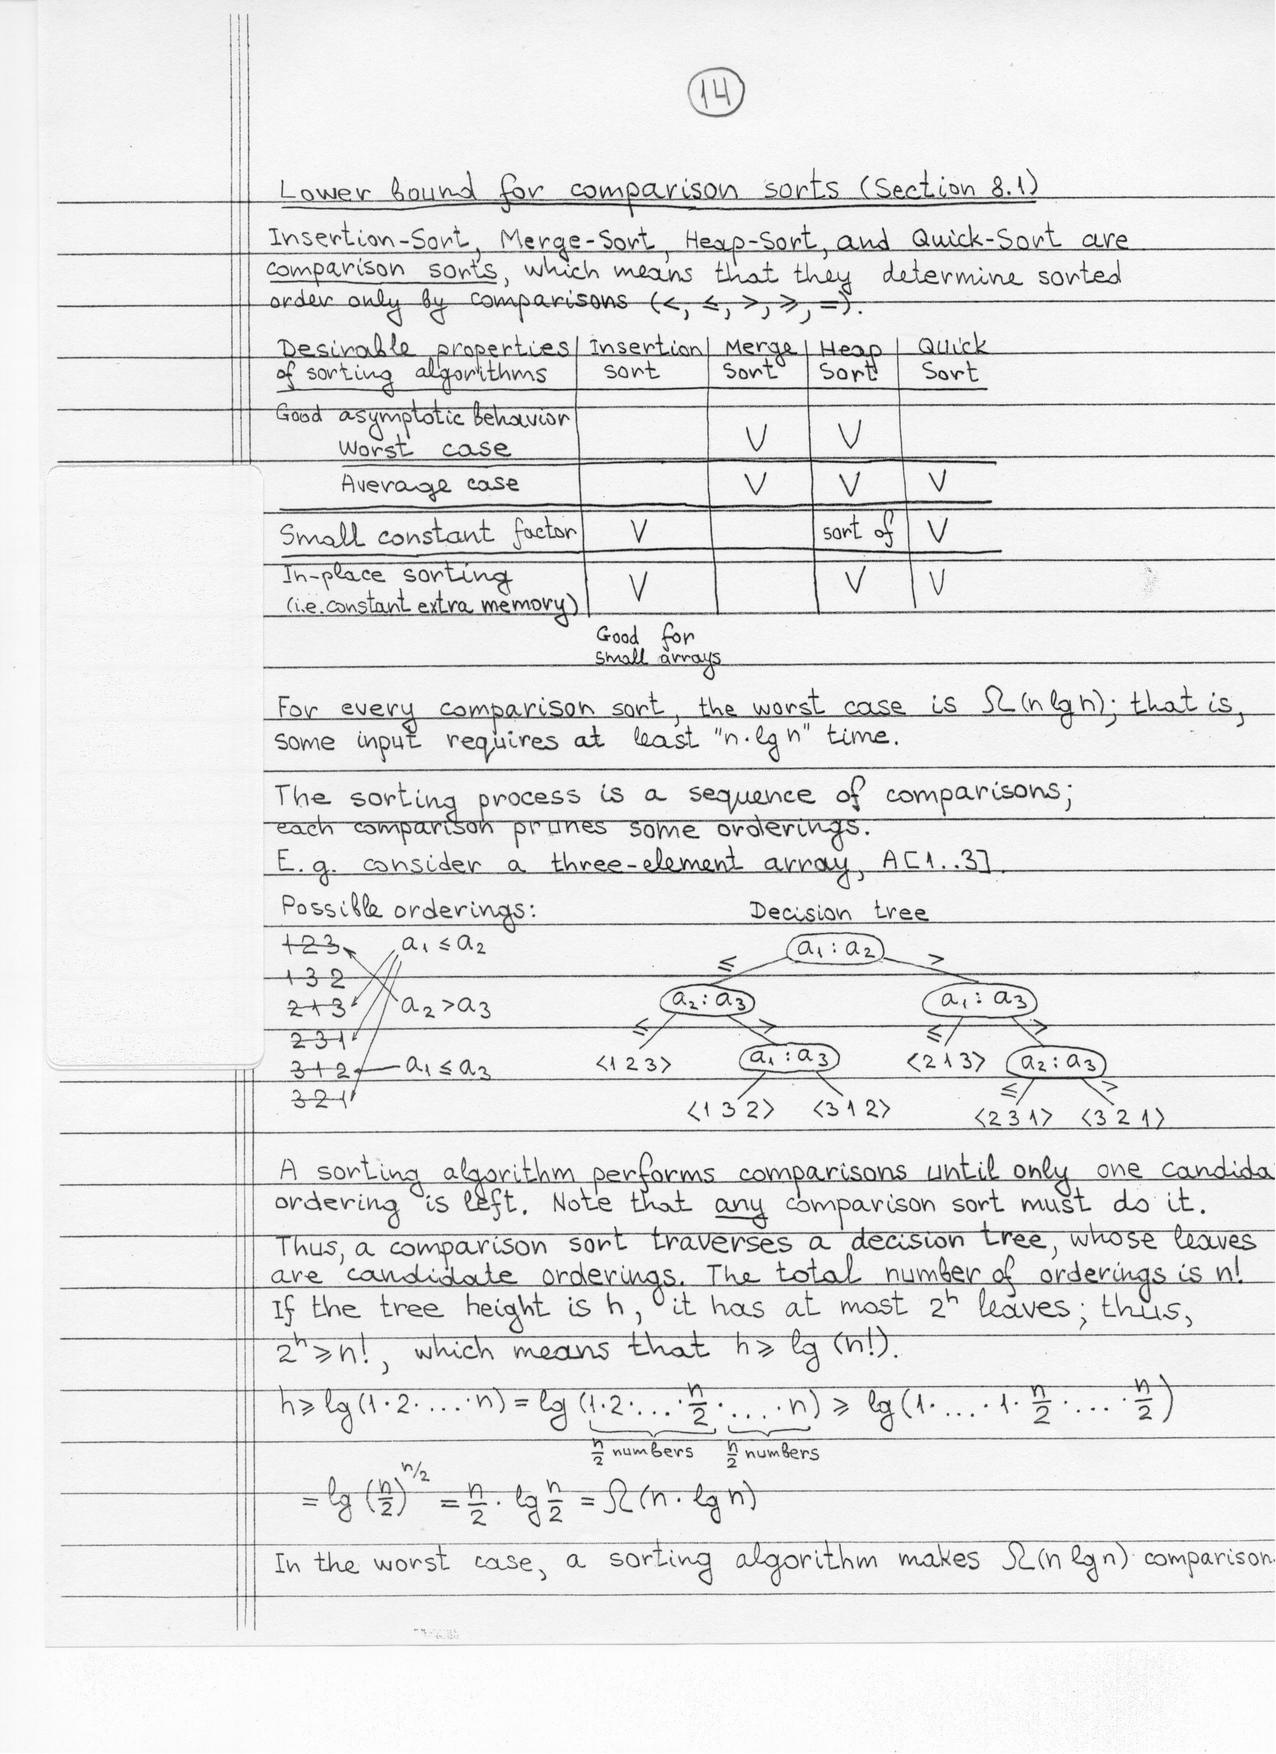 14
Lower bound for comparison sorts (Section 8.1)
Insertion-Sort, Merge-Sort, Heap-Sort, and Quick-Sort are
comparison sorts, which means that they determine sorted
order only by comparisons (<, ≤, >, ≥, =).
Desirable properties | Insertion | Merge | Heap | Quick
of sorting algorithms | sort | Sort | Sort | Sort
Good asymptotic behavior
Worst case | | V | V |
Average case | | V | V | V
Small constant factor | V | | sort of | V
In-place sorting | V | | V | V
(i.e. constant extra memory)
Good for
small arrays
For every comparison sort, the worst case is Ω(n lg n); that is,
some input requires at least "n·lg n" time.
The sorting process is a sequence of comparisons;
each comparison prunes some orderings.
E.g. consider a three-element array, A[1..3].
Possible orderings:
1 2 3
1 3 2
2 1 3
2 3 1
3 1 2
3 2 1
a₁ ≤ a₂
a₂ > a₃
a₁ ≤ a₃
Decision tree
a₁ : a₂
≤ >
a₂ : a₃ a₁ : a₃
≤ > ≤ >
⟨1 2 3⟩ a₁ : a₃ ⟨2 1 3⟩ a₂ : a₃
≤ >
⟨1 3 2⟩ ⟨3 1 2⟩ ⟨2 3 1⟩ ⟨3 2 1⟩
A sorting algorithm performs comparisons until only one candida
ordering is left. Note that any comparison sort must do it.
Thus, a comparison sort traverses a decision tree, whose leaves
are candidate orderings. The total number of orderings is n!
If the tree height is h, it has at most 2ʰ leaves; thus,
2ʰ ≥ n!, which means that h ≥ lg (n!).
h ≥ lg(1·2·...·n) = lg (1·2·...·n/2·...·n) ≥ lg(1·...·1·n/2·...·n/2)
n/2 numbers n/2 numbers
= lg (n/2)^n/2 = n/2 · lg n/2 = Ω(n·lg n)
In the worst case, a sorting algorithm makes Ω(n lg n) comparison